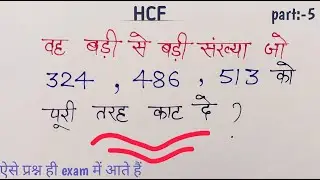 HCF part:-5
वह बड़ी से बड़ी संख्या जो
324 , 486 , 513 को
पूरी तरह काट दे ?
ऐसे प्रश्न ही exam में आते हैं